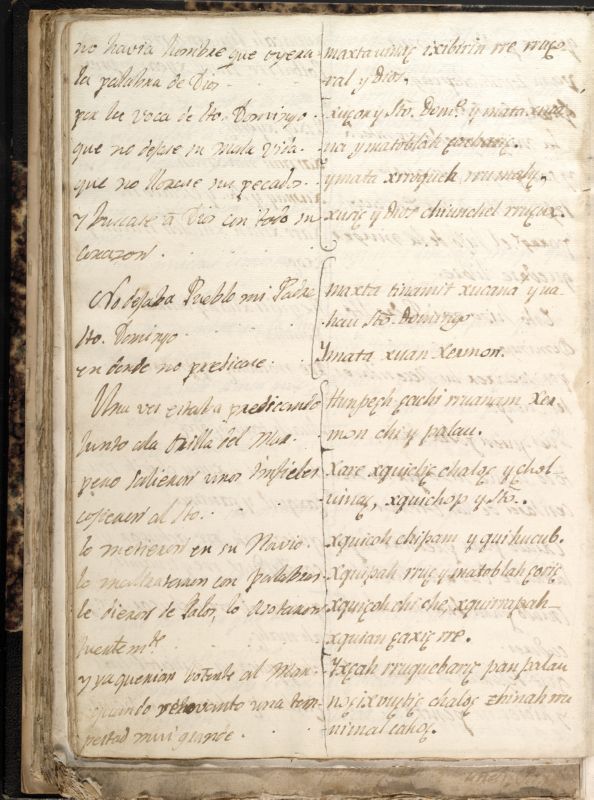 no havia hombre que oyera
la palabra de Dios.
por la voca de Sto. Domingo
que no dejase su mala vida.
que no llorase su pecado.
y buscase à Dios con todo su
corazon.
No dejaba Pueblo mi Padre
Sto. Domingo
en donde no predicase.
Una ves estaba predicando
junto ala orilla del Mar.
pero salieron unos infieles
cogieron al Sto.
lo metieron en su Navio.
lo maltrataron con palabras
le dieron de palos, lo asotaron
fuertemte
y ya querian botarle al Mar.
quando relevanto una tem-
pestad mui grande.
maxta vinaç ixibirin rre ruço-
ral y Dios.
xuçon y Sto. Domo. y mata xuyá
na y matoblah çochariç.
y mata xrroqueh rrumaly,
xuriç y Dios chiunchel rruçux.
maxta tinamit xucana y na
hau Sto. Domingo
ymata xuan xermon.
Hunpeçh çachi rruanam xer-
mon chi y palau.
xare xquieliç chaloç y çhol
vinaç, xquichop y Sto.
xquicoh chipam y quihucub.
xquipah rruç y matoblah çoriç
xquiçoh chi che, xquirrapah
xquian çaxiç rre.
Yxçah rruquebariç pan palau
noçixvuytiç chaloç zhinah rru
nimal cakoç.